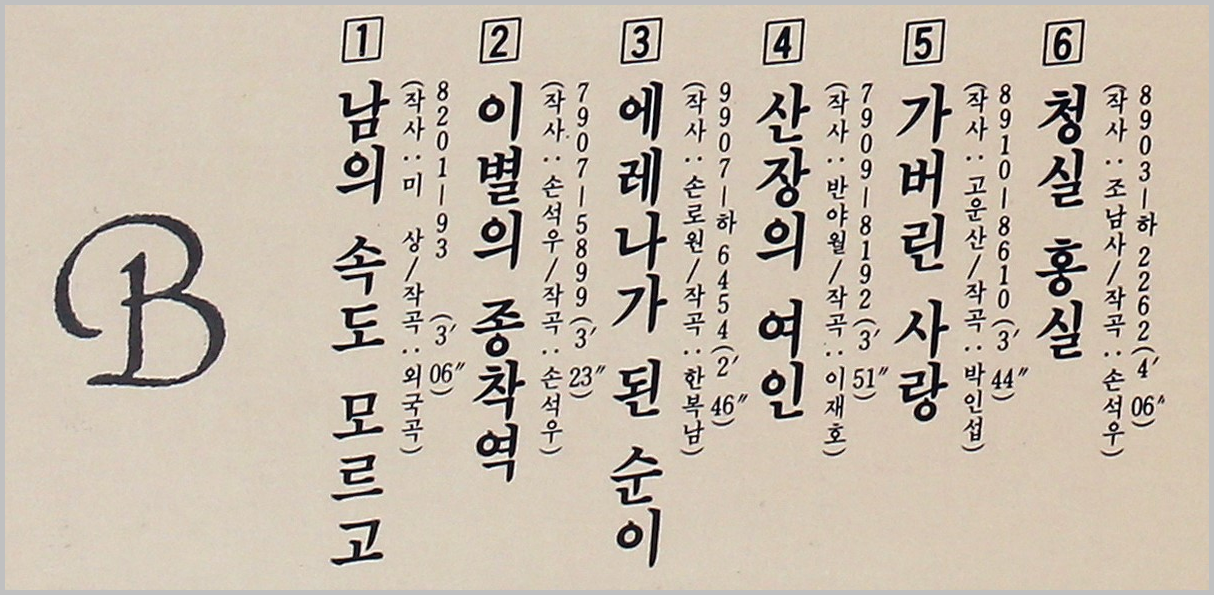 B
1
남의 속도 모르고
(작사:미 상/작곡:외국곡)
8201-93 (3′06″)
2
이별의 종착역
(작사:손석우/작곡:손석우)
7907-5899 (3′23″)
3
에레나가 된 순이
(작사:손로원/작곡:한복남)
9907-하6454 (2′46″)
4
산장의 여인
(작사:반야월/작곡:이재호)
7909-8192 (3′51″)
5
가버린 사랑
(작사:고운산/작곡:박인섭)
8910-8610 (3′44″)
6
청실 홍실
(작사:조남사/작곡:손석우)
8903-하2262 (4′06″)